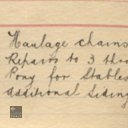 Haulage chains
Repairs to 3
Pony for Stables
additional Siding